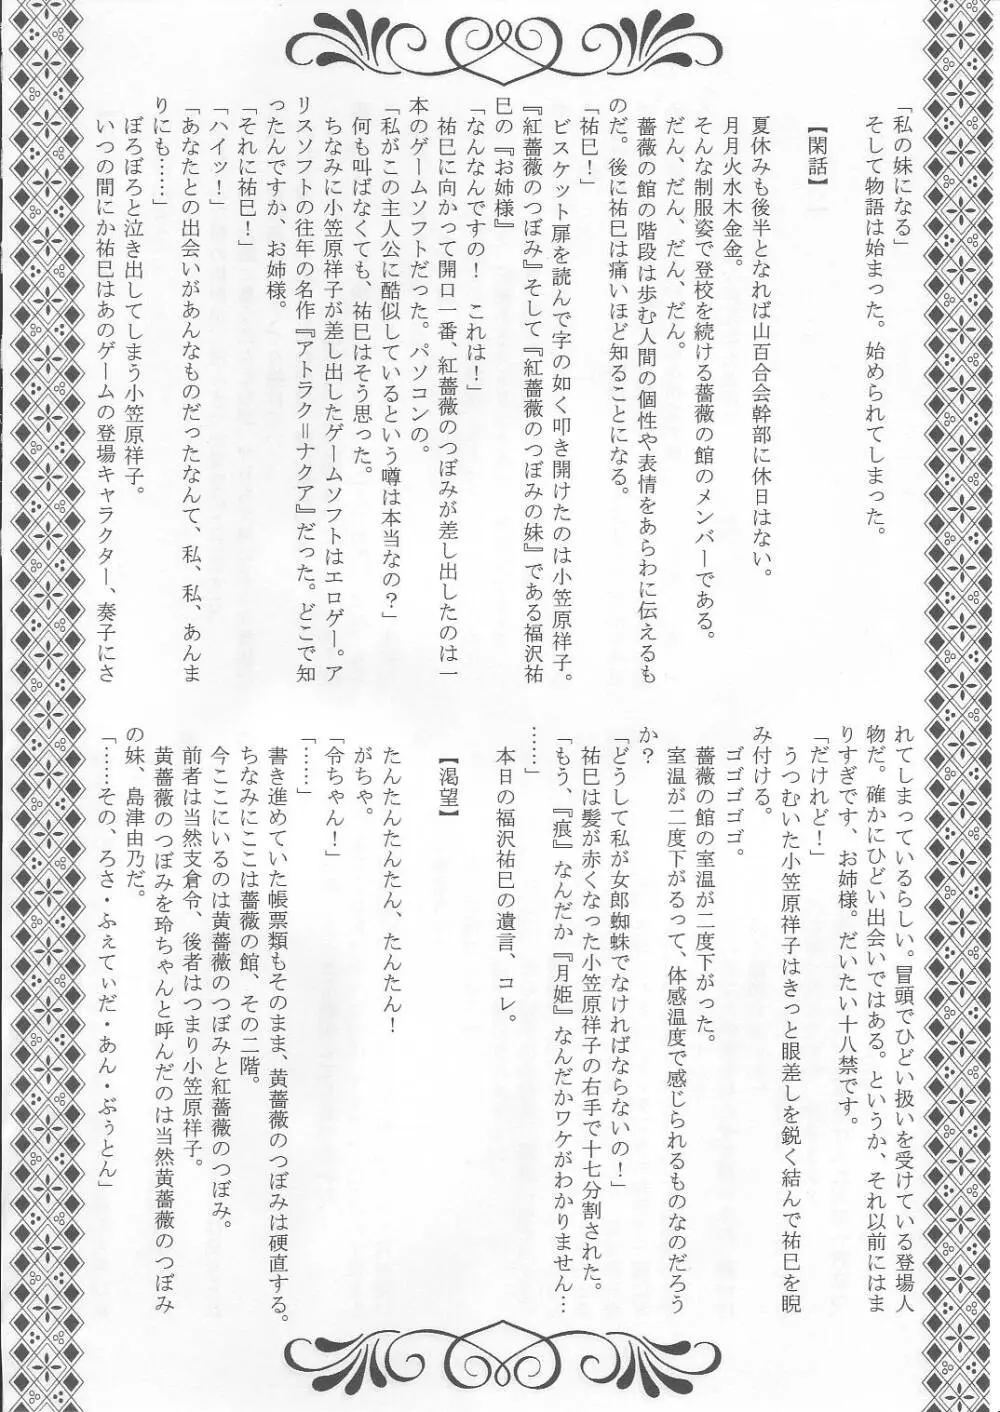 「私の妹になる」
そして物語は始まった。始められてしまった。
【閑話】
夏休みも後半となれば山百合会幹部に休日はない。
月月火水木金金。
そんな制服姿で登校を続ける薔薇の館のメンバーである。
だん、だん、だん、だん。
薔薇の館の階段は歩む人間の個性や表情をあらわに伝えるも
のだ。後に祐巳は痛いほど知ることになる。
「祐巳！」
ビスケット扉を読んで字の如く叩き開けたのは小笠原祥子。
『紅薔薇のつぼみ』そして『紅薔薇のつぼみの妹』である福沢祐
巳の『お姉様』
「なんなんですの！　これは！」
祐巳に向かって開口一番、紅薔薇のつぼみが差し出したのは一
本のゲームソフトだった。パソコンの。
「私がこの主人公に酷似しているという噂は本当なの？」
何も叫ばなくても、祐巳はそう思った。
ちなみに小笠原祥子が差し出したゲームソフトはエロゲー。ア
リスソフトの往年の名作『アトラク＝ナクア』だった。どこで知
ったんですか、お姉様。
「それに祐巳！」
「ハイッ！」
「あなたとの出会いがあんなものだったなんて、私、私、あんま
りにも……」
ぼろぼろと泣き出してしまう小笠原祥子。
いつの間にか祐巳はあのゲームの登場キャラクター、奏子にさ
れてしまっているらしい。冒頭でひどい扱いを受けている登場人
物だ。確かにひどい出会いではある。というか、それ以前にはま
りすぎです、お姉様。だいたい十八禁です。
「だけれど！」
うつむいた小笠原祥子はきっと眼差しを鋭く結んで祐巳を睨
み付ける。
ゴゴゴゴゴ。
薔薇の館の室温が二度下がった。
室温が二度下がるって、体感温度で感じられるものなのだろう
か？
「どうして私が女郎蜘蛛でなければならないの！」
祐巳は髪が赤くなった小笠原祥子の右手で十七分割された。
「もう、『痕』なんだか『月姫』なんだかワケがわかりません…
……」
本日の福沢祐巳の遺言、コレ。
【渇望】
たんたんたんたん、たんたん！
がちゃ。
「令ちゃん！」
「……」
書き進めていた帳票類もそのまま、黄薔薇のつぼみは硬直する。
ちなみにここは薔薇の館、その二階。
今ここにいるのは黄薔薇のつぼみと紅薔薇のつぼみ。
前者は当然支倉令、後者はつまり小笠原祥子。
黄薔薇のつぼみを玲ちゃんと呼んだのは当然黄薔薇のつぼみ
の妹、島津由乃だ。
「……その、ろさ・ふぇてぃだ・あん・ぶぅとん」